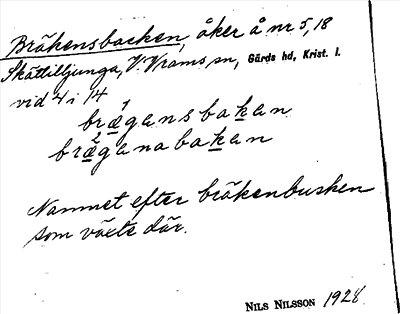 Bräkensbacken, åker å nr 5, 18
Skättilljunga, V. Vrams sn, Gärds hd, Krist. l.
vid 4 i 14
bræ̲1gansbak̲an
bræ̲2ganabak̲an
Namnet efter bräkenbusken
som växte där.
NILS NILSSON 1928